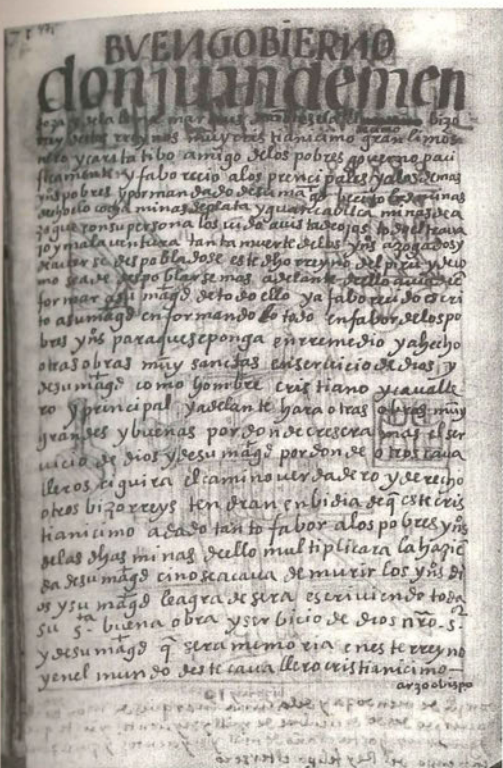 BVENGOBIERNO
don juan de men
bizo
rrey destos rreynos muy cristianicimo gran limos
nero y caratatibo amigo de los pobres governo paci
ficamente y faborecio a los prencipales y a los demas
yns pobres y por mandado de su magd
minas de plata y guancabilca minas de a
zogue con su persona los uido a uista de ojos todo el trava
jo y mala ventura tanta muerte de los yns azogados y
de auerse despoblado este dho rreyno del piru y deco
mo sea de despoblarse mas adelante dello
formar a su magd de todo ello y a faborecido escri
to a su magd enformando lo todo en fabor de los po
bres yns para que se ponga en rremedio y a hecho
otras obras muy sanctas en seruicio de dios y
de su magd como hombre cristiano y cavalle
ro y principal y adelante hara otras obras muy
grandes y buenas por donde cresera mas el ser
uicio de dios y de su magd por donde otros cava
lleros ciguira el camino uerdadero y derecho
otros bizorreys tendran enbidia de q este cris
tianicimo a dado tanto fabor a los pobres yns
de las dhas minas dello multiplicara la hazie
da de su magd cino se acava de murir los yns di
os y su magd le agradesera escriuiendo toda
su sta buena obra y serbicio de dios nro sr
y de su magd q sera memoria en este rreyno
y en el mundo deste cauallero cristianicimo—
arzobispo